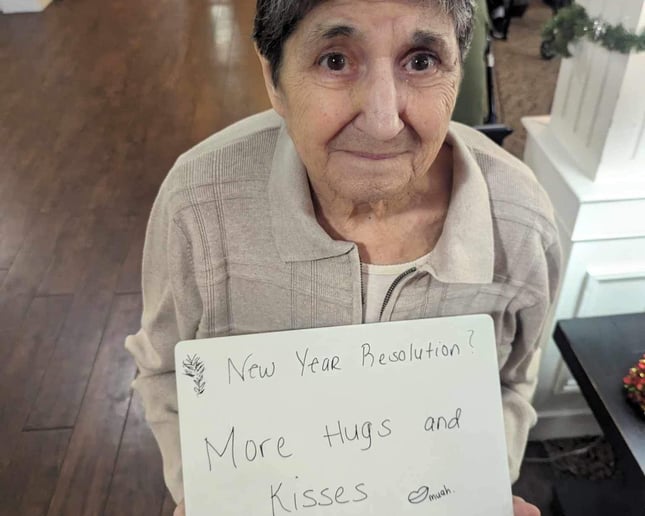 New Year Resolution?
More Hugs and
Kisses muah.